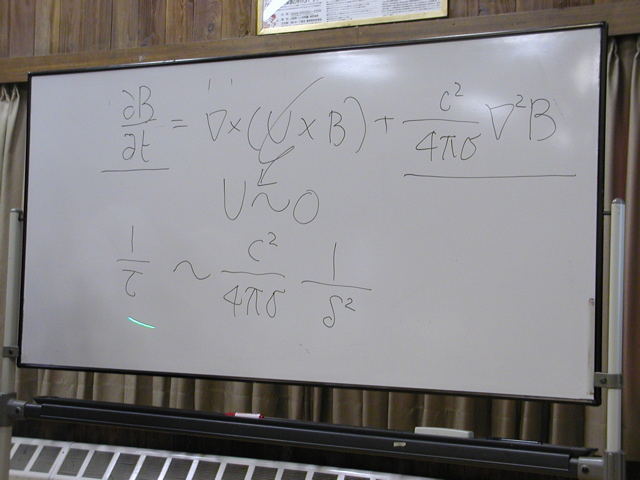 ∂B/∂t = ∇×(U×B) + c²/4πσ ∇²B
U~0
1/τ ~ c²/4πσ 1/δ²